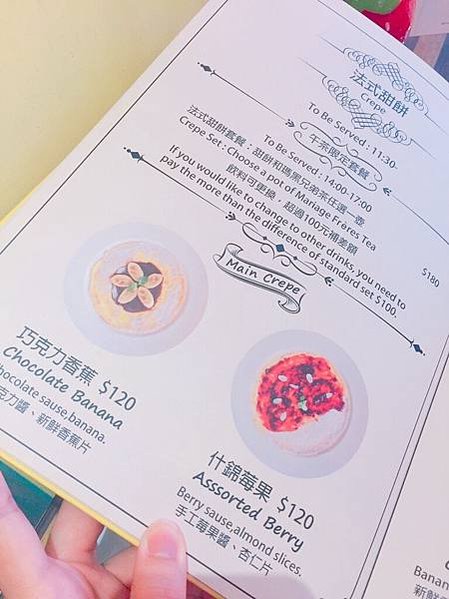 法式甜餅
Crepe
To Be Served : 11:30-
午茶限定套餐
To Be Served : 14:00-17:00
法式甜餅套餐：甜餅和瑪黑兄弟茶任選一壺
Crepe Set : Choose a pot of Mariage Frères Tea
飲料可更換，超過100元補差額
If you would like to change to other drinks, you need to
pay the more than the difference of standard set $100.
$180
Main Crepe
巧克力香蕉 $120
Chocolate Banana
hocolate sause,banana.
克力醬、新鮮香蕉片
什錦莓果 $120
Asssorted Berry
Berry sause,almond slices.
手工莓果醬、杏仁片
Banan
新鮮